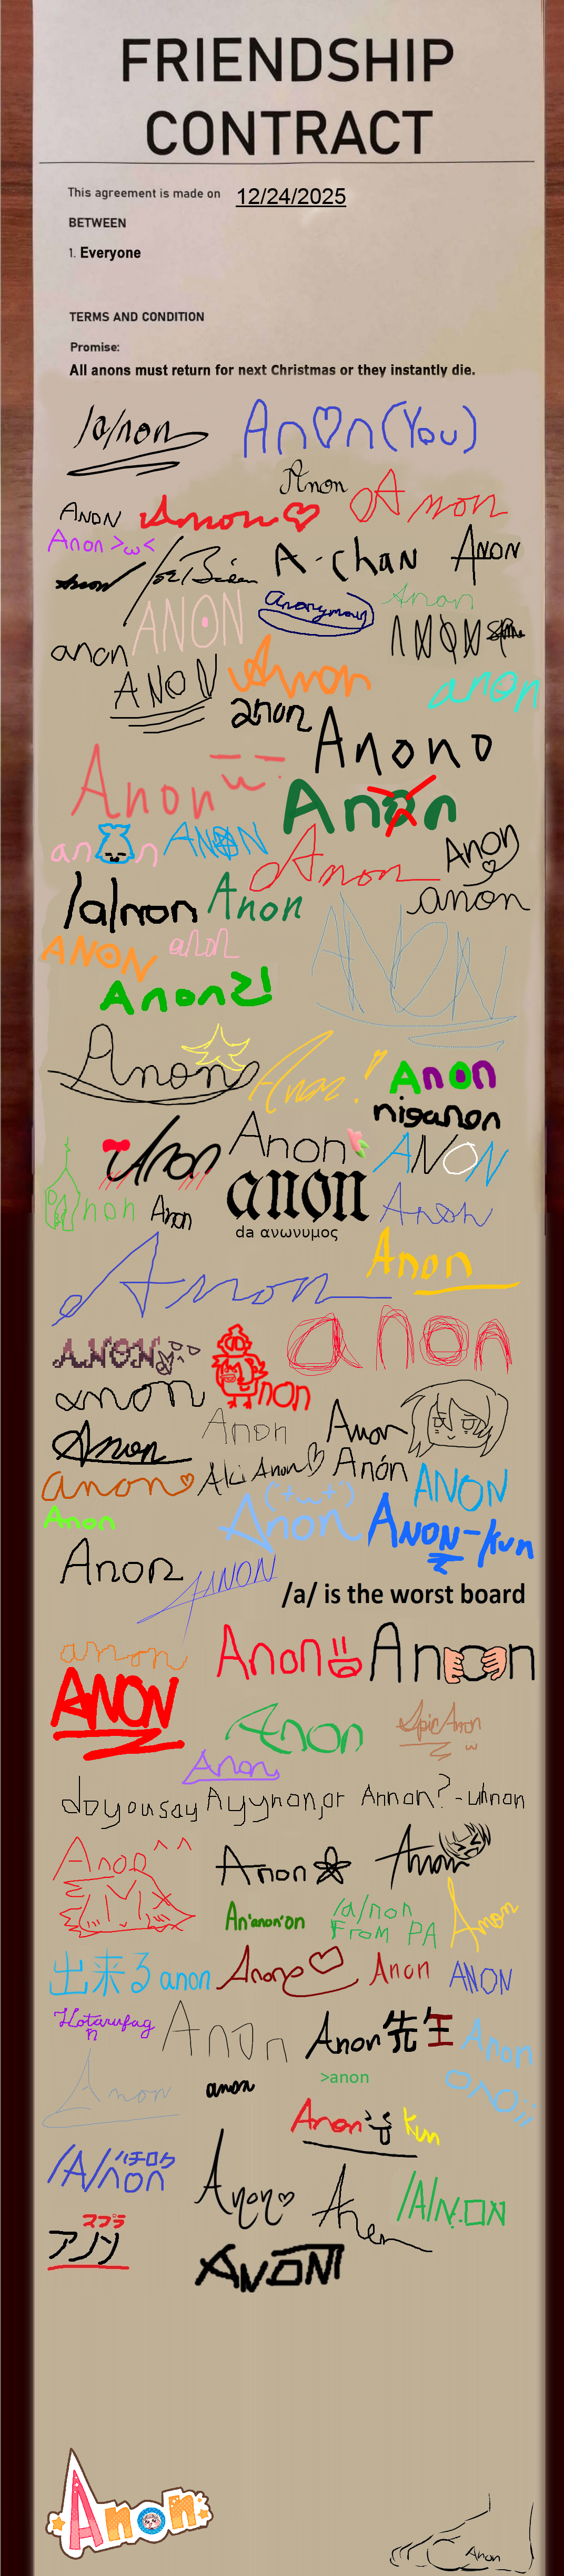 FRIENDSHIP
CONTRACT
This agreement is made on 12/24/2025
BETWEEN
1. Everyone
TERMS AND CONDITION
Promise:
All anons must return for next Christmas or they instantly die.
/a/non
An♡n (You)
Anon
Anon
ANON
Anon ♡
Anon >ω<
Anon
Joe Biden
A-chan
ANON
ANON
Anonymous
Anon
anon
ANON
Anon
anon
anon
Anono
Anon
Anon
an n
ANON
Anon
Anon
/a/non
Anon
anon
ANON
anon
ANON
Anon2!
Anon
Anon!!
Anon
niganon
Anon
Anon
ANON
anon
non
Anon
Anon
da ανωνυμος
Anon
Anon
ANON
non
anon
anon
Anon
Anon
Anon
anon ♡
Aki Anon ♡
Anón
ANON
Anon
('+ω+')
Anon
ANON-kun
Anon
ANON
/a/ is the worst board
anon
Anon
Anon
ANON
Anon
EpicAnon
ω
Anon
do you say Ayynon, or Annon? - uhnon
Anon ^^
Anon
Anon
An'anon'on
/a/non
From PA
Anon
出来る anon
Anon ♡
Anon
ANON
Hotarufag
n
Anon
Anon先生
Anon
Anon
anon
>anon
Anon
kun
/A/non
ハチロク
Anon ♡
Anon
/A/N.ON
スプラ
アノン
ANON
Anon
Anon